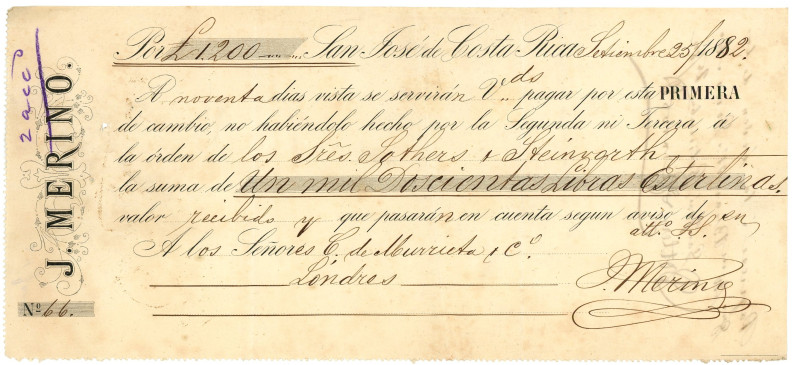 Por £1.200 San José de Costa-Rica Setiembre 25/1882.
A noventa dias vista se servirán Vds pagar por esta PRIMERA
de cambio, no habiéndolo hecho por la Segunda ni Tercera, á
la órden de los Srēs. Sothers & Steinvorth
la suma de Un mil Doscientas Libras Esterlinas.
valor recibido y que pasarán en cuenta segun aviso de su
att.º S.S.
A los Señores C. de Murrieta & Cº.
Londres
J. Merino
J. MERINO.
Nº 66.